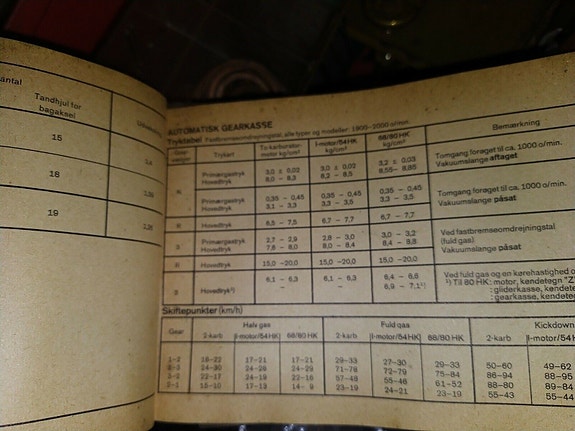 antal
Tandhjul for
bagaksel
15
18
19
AUTOMATISK GEARKASSE
Trykart
kg/cm²
kg/cm²
Bemærkning
N
Primærgastryk 3,0 ± 0,02 3,0 ± 0,02 3,2 ± 0,03
Hovedtryk 8,0 – 8,3 8,2 – 8,5 8,55– 8,85
Tomgang forøget til ca. 1000 o/min.
Vakuumslange aftaget
Primærgastryk 0,35 – 0,45 0,35 – 0,45 0,35 – 0,45
Hovedtryk 3,1 – 3,3 3,3 – 3,5 3,3 – 3,5
Tomgang forøget til ca. 1000 o/min.
Vakuumslange påsat
R Hovedtryk 6,5 – 7,5 6,7 – 7,7 6,7 – 7,7
S Primærgastryk 2,7 – 2,9 2,8 – 3,0 3,0 – 3,2
Hovedtryk 7,6 – 8,0 8,0 – 8,4 8,4 – 8,8
Ved fastbremseomdrejningstal
(fuld gas)
Vakuumslange påsat
R Hovedtryk 15,0 –20,0 15,0 –20,0 15,0 –20,0
S Hovedtryk¹) 6,1 – 6,3 6,1 – 6,3 6,4 – 6,6
– – 6,9 – 7,1¹)
Ved fuld gas og en kørehastighed o
¹) Til 80 HK: motor, kendetegn "Z
: gliderkasse, kendete
: gearkasse, kendetegn
Skiftepunkter (km/h)
Gear Halv gas Fuld gas Kickdown
2-karb I-motor/54HK 68/80 HK 2-karb I-motor/54HK 68/80 HK 2-karb I-motor/54
1–2 18–22 17–21 17–21 29–33 27–30 29–33 50–60 49–62
2–3 24–30 24–26 24–29 71–78 72–79 75–84 86–94 88–95
3–2 22–17 24–19 22–16 57–48 55–46 61–52 88–80 89–84
2–1 17–13 14– 9 23–19 24–21 23–19 55–43 55–44